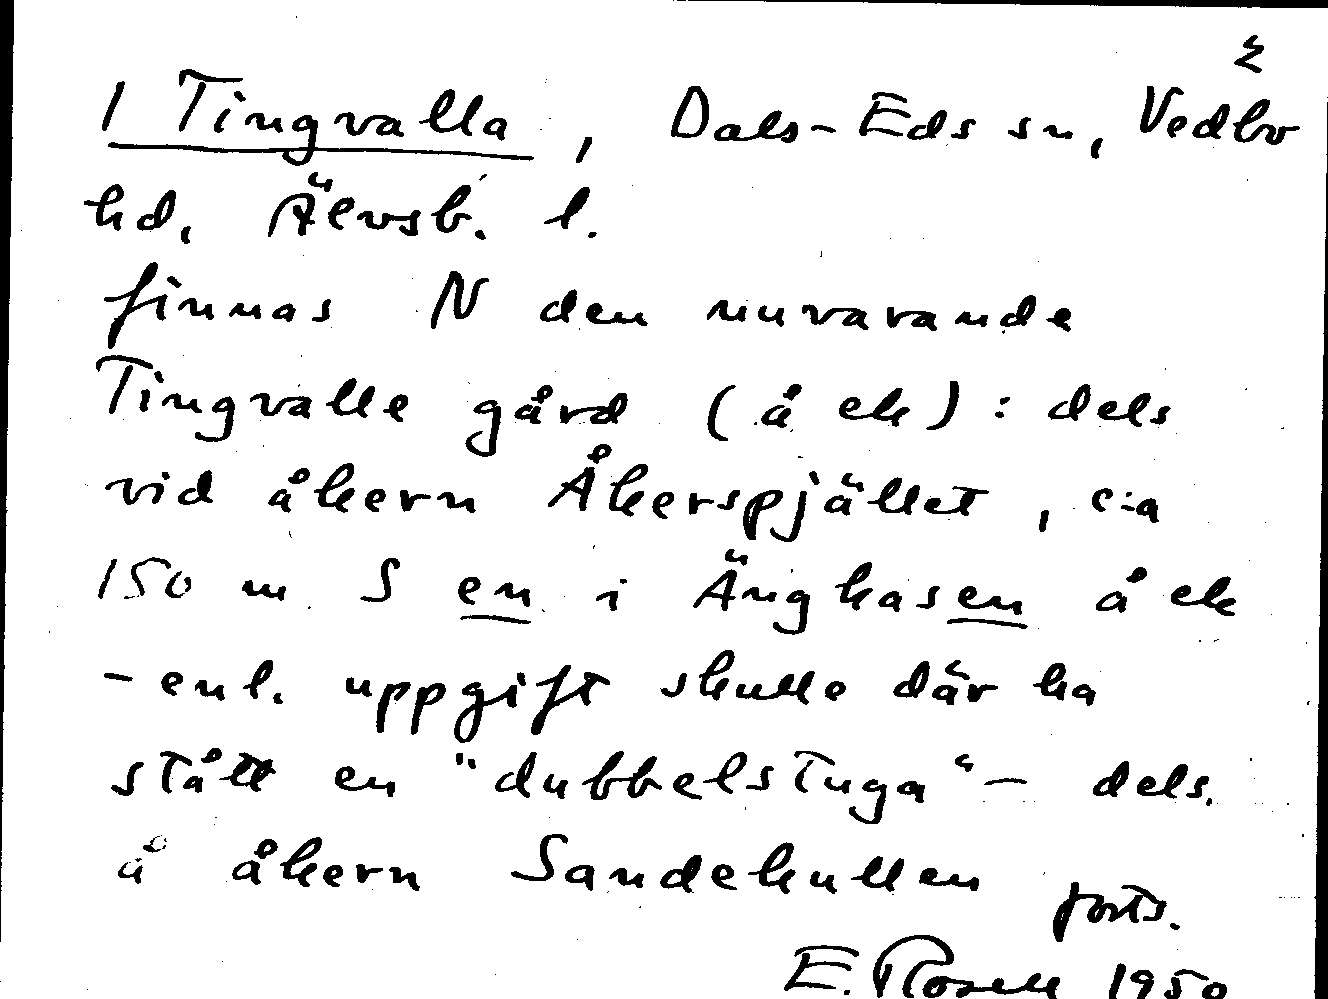 1 Tingvalla, Dals-Eds sn, Vedbo
hd, Älvsb. l.
finnas N den nuvarande
Tingvalle gård (å ek): dels
vid åkern Åkerspjället, c:a
150 m S en i Änghasen å ek
- enl. uppgift skulle där ha
stått en "dubbelstuga" - dels
å åkern Sandekullen
forts.
E. Rosell 1950